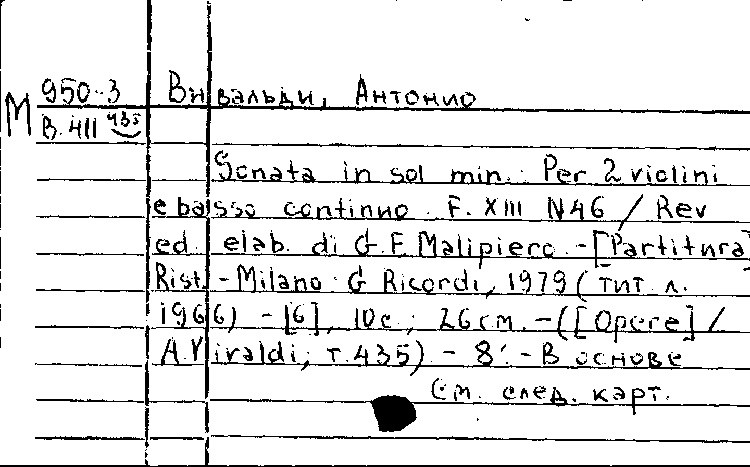 950-3 Вивальди, Антонио
М
В.411 435
Sonata in sol min.: Per 2 violini
e basso continuo. F. XIII N46 / Rev
ed. elab. di G.F. Malipiero. -[Partitura]
Rist. - Milano: G Ricordi, 1979 (тит. л.
1966) - [6], 10с.; 26см. - ([Opere] /
A. Vivaldi; т. 435) - 8'. - В основе
См. след. карт.